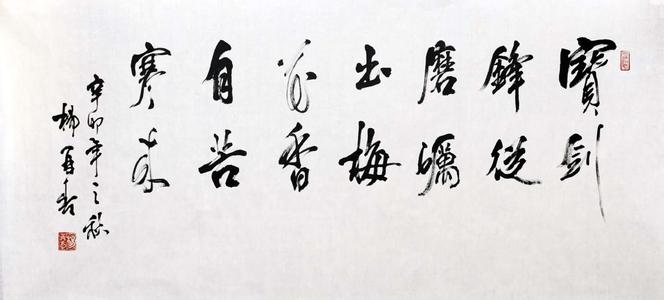 寶劍
鋒從
磨礪
出梅
花香
自苦
寒来
辛卯年之秋
楊再春